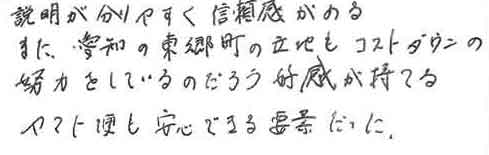 説明が分りやすく信頼感がある
また、愛知の東郷町の立地もコストダウンの
努力をしているのだろう好感が持てる
ヤマト便も安心できる要素だった。